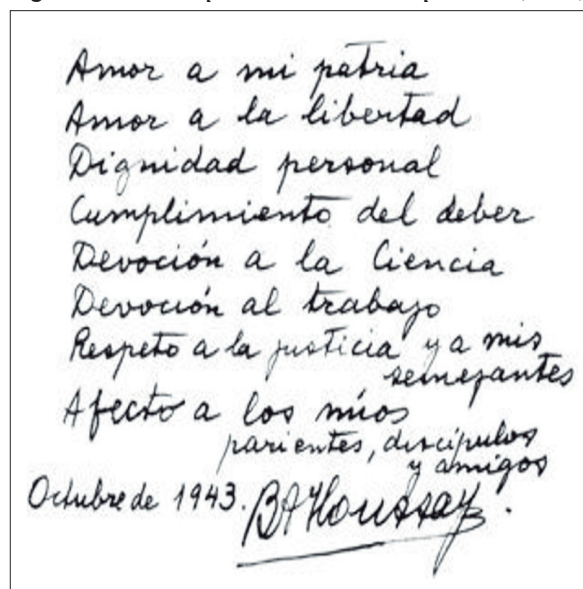 Amor a mi patria
Amor a la libertad
Dignidad personal
Cumplimiento del deber
Devoción a la Ciencia
Devoción al trabajo
Respeto a la justicia y a mis
semejantes
Afecto a los míos
parientes, discípulos
y amigos
Octubre de 1943. BAHoussay.